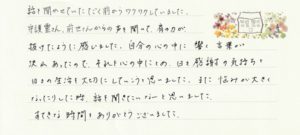 話を聞かせていただく前からワクワクしていました。
守護霊さん、前世さんからの声を聞って、肩の力が
抜けたように感じました。自分の心の中に響く言葉が
沢山あったので、それを心の中にとめ、日々感謝の気持ちと
日々の生活を大切にしていこうと思いました。また悩みが大きく
なったりした時、話を聞きたいな〜と思いました。
すてきな時間をありがとうございました。